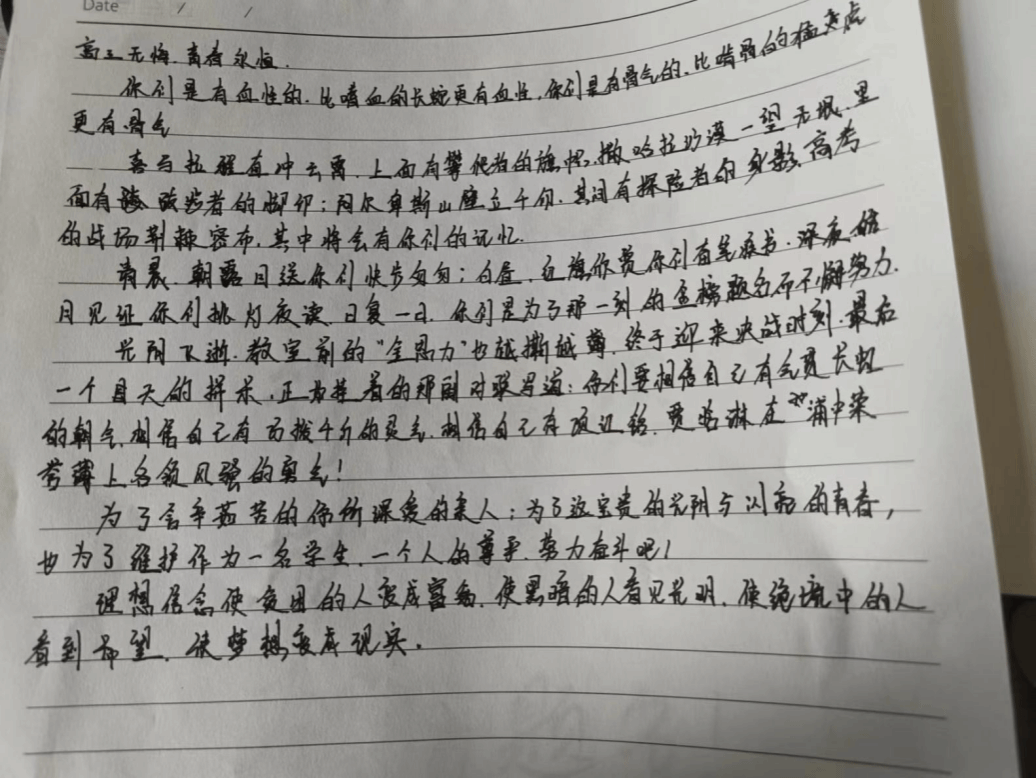 Date / /
高三无悔.青春永恒.
你们是有血性的.比嗜血的长蛇更有血性.你们是有骨气的.比啃弱的猛虎
更有骨气
喜马拉雅直冲云霄.上面有攀爬者的旗帜.撒哈拉沙漠一望无垠.里
面有跋涉者的脚印;阿尔卑斯山壁立千仞.其间有探险者的身影.高考
的战场荆棘密布.其中将会有你们的记忆.
清晨.朝露目送你们快步匆匆;白昼.红旗你们奋笔疾书.深夜
月见证你们挑灯夜读.日复一日.你们是为了那一刻的金榜题名而不懈努力.
光阴飞逝.教室前的“全力”也越撕越薄.终于迎来决战时刻.最后
一个百天的拼杀.正如挂着的那副对联写道:你们要相信自己有气贯长虹
的朝气.相信自己有力拨千斤的勇气.相信自己在
上各领风骚的勇气!
为了含辛茹苦的你所深爱的亲人;为了这宝贵的光阴与闪亮的青春,
也为了维护作为一名学生.一个人的尊严.努力奋斗吧!
理想信念使贫困的人变成富翁.使黑暗的人看见光明.使绝境中的人
看到希望.使梦想变成现实.